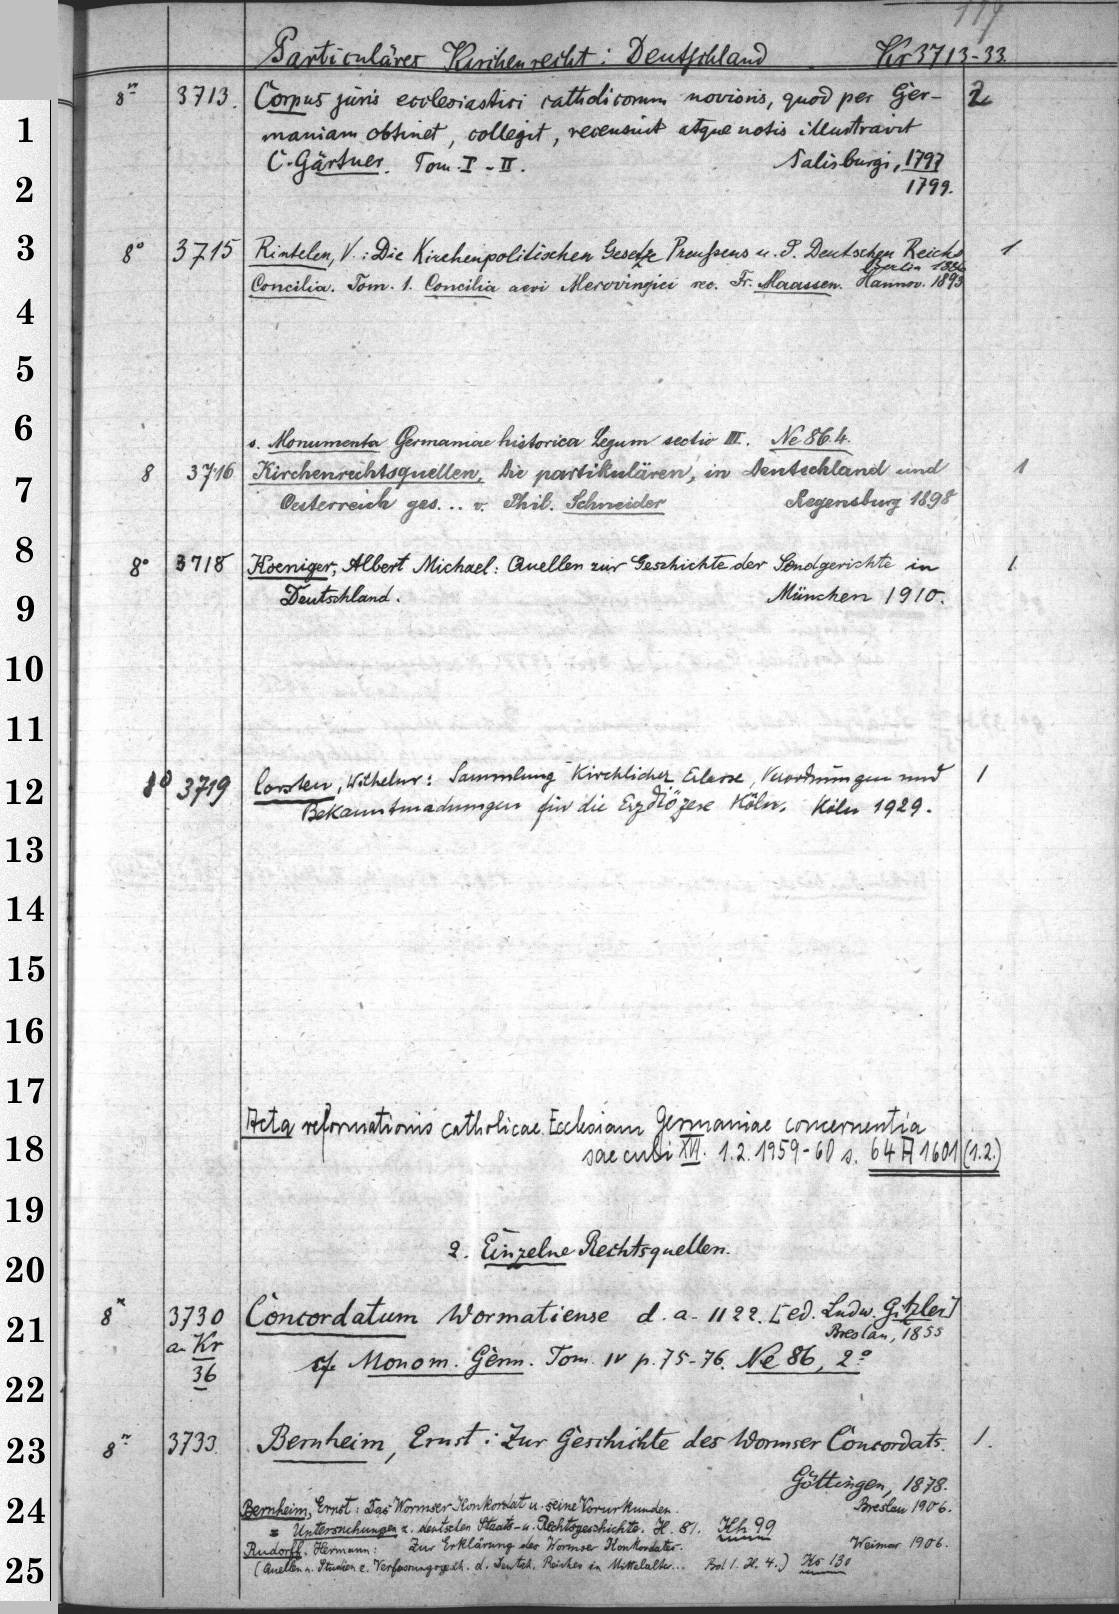 117
Particuläres Kirchenrecht: Deutschland Kr 3713-33.
8° 3713. Corpus juris ecclesiastici catholicorum novioris, quod per Ger- 2
maniam obtinet, collegit, recensuit atque notis illustravit
C. Gärtner. Tom. I-II. Salisburgi, 1797
1799.
8° 3715 Rintelen, V.: Die Kirchenpolitischen Gesetze Preußens u. d. Deutschen Reichs 1
Berlin 1886
Concilia. Tom. 1. Concilia aevi Merovingici rec. Fr. Maassen. Hannov. 1893
s. Monumenta Germaniae historica Legum sectio III. Ne 86.4.
8 3716 Kirchenrechtsquellen, Die partikulären, in Deutschland und 1
Oesterreich ges... v. Phil. Schneider Regensburg 1898
8° 3718 Koeniger, Albert Michael: Quellen zur Geschichte der Sendgerichte in 1
Deutschland. München 1910.
8° 3719 Corsten, Wilhelm: Sammlung Kirchlicher Erlasse, Verordnungen und 1
Bekanntmachungen für die Erzdiözese Köln. Köln 1929.
Acta reformationis catholicae Ecclesiam Germaniae concernentia
saeculi XVI. 1.2. 1959-60 s. 64 A 1601 (1.2.)
2. Einzelne Rechtsquellen.
8° 3730 Concordatum Wormatiense d. a. 1122. [ed. Ludw. Gitzler]
an Kr Breslau, 1855
36 cf. Monom. Germ. Tom. IV p. 75-76. Ne 86, 2°
8° 3733. Bernheim, Ernst: Zur Geschichte des Wormser Concordats. 1.
Göttingen, 1878.
Bernheim, Ernst: Das Wormser Konkordat u. seine Vorurkunden. Breslau 1906.
= Untersuchungen z. deutschen Staats- u. Rechtsgeschichte. H. 81. Kh 99
Rudorff, Hermann: Zur Erklärung des Wormser Konkordates. Weimar 1906.
(Quellen u. Studien z. Verfassungsgesch. d. Deutsch. Reiches in Mittelalter... Bd 1. H. 4.) Ks 130
1
2
3
4
5
6
7
8
9
10
11
12
13
14
15
16
17
18
19
20
21
22
23
24
25